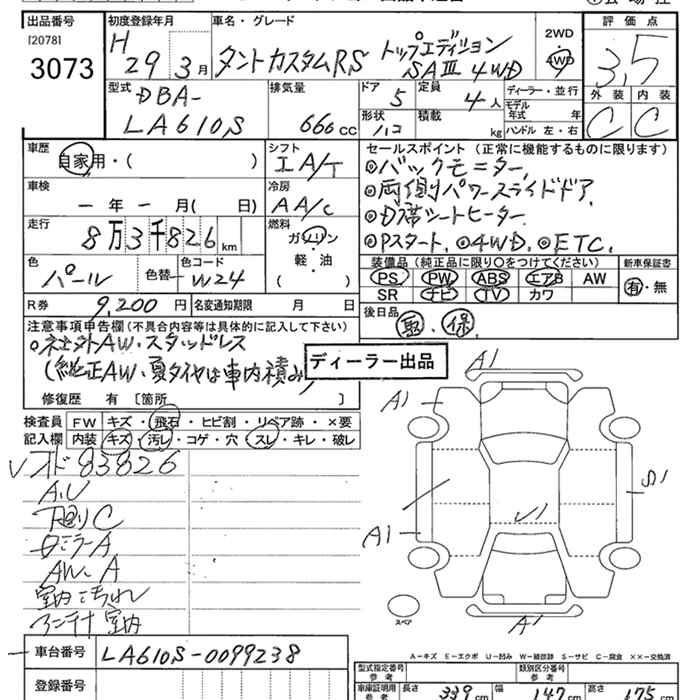 出品番号 初度登録年月 車名・グレード 評価点
[2078]
3073
H 29 3月 タントカスタムRS トップエディション SAⅢ 4WD
2WD
4WD
3.5
型式 排気量 ドア 定員 ディーラー・並行
DBA- LA610S 666cc 5 4人
モデル年式 年
形状 積載 ハンドル 左・右
ハコ kg
外装 内装
C C
車歴 シフト セールスポイント (正常に機能するものに限ります)
自家用・( ) IA/T
◎バックモニター
車検 冷房 ◎両側パワースライドドア
一年一月( 日) AA/C
◎D席シートヒーター
走行 燃料 ◎Pスタート, ◎4WD, ◎ETC.
8万3千826km ガソリン
軽・油
( )
色 色替 色コード
パール W24
装備品 (純正品に限り○をつけてください) 新車保証書
PS PW ABS エアB AW 有・無
SR ナビ TV カワ
R券 9,200円 名変通知期限 月 日
後日品
取, 保
注意事項申告欄(不具合内容等は具体的に記入して下さい)
○社外AW・スタッドレス
(純正AW・夏タイヤは車内積み)
ディーラー出品
修復歴 有 [箇所 ]
検査員 FW キズ・飛石・ヒビ割・リペア跡・×要
記入欄 内装 キズ・汚レ・コゲ・穴・スレ・キレ・破レ
83826
A.U
下回りC
DミラーA
AW A
A1
A1
A1
S1
U1
A1
スペア
室内
室内
車台番号 LA610S-0099238
登録番号
A-キズ E-エクボ U-凹み W-補修跡 S-サビ C-腐食 ××-交換済
型式指定番号 参考 類別区分番号 参考
車庫証明用 参考 長さ 339cm 幅 147cm 高さ 175cm